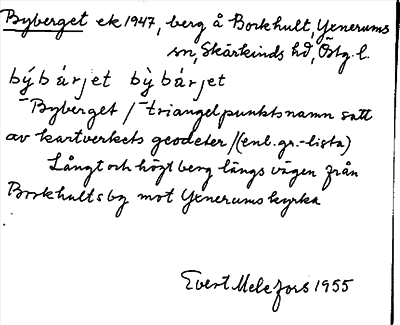 Byberget ek 1947, berg å Borkhult, Yxnerums
sn, Skärkinds hd, Östg. l.
bý bárjet bỳ bárjet
Byberget /triangelpunktsnamn satt
av kartverkets geodeter/(enl.gr.-lista)
Långt och högt berg längs vägen från
Borkhults by mot Yxnerums kyrka
Evert Melefors 1955